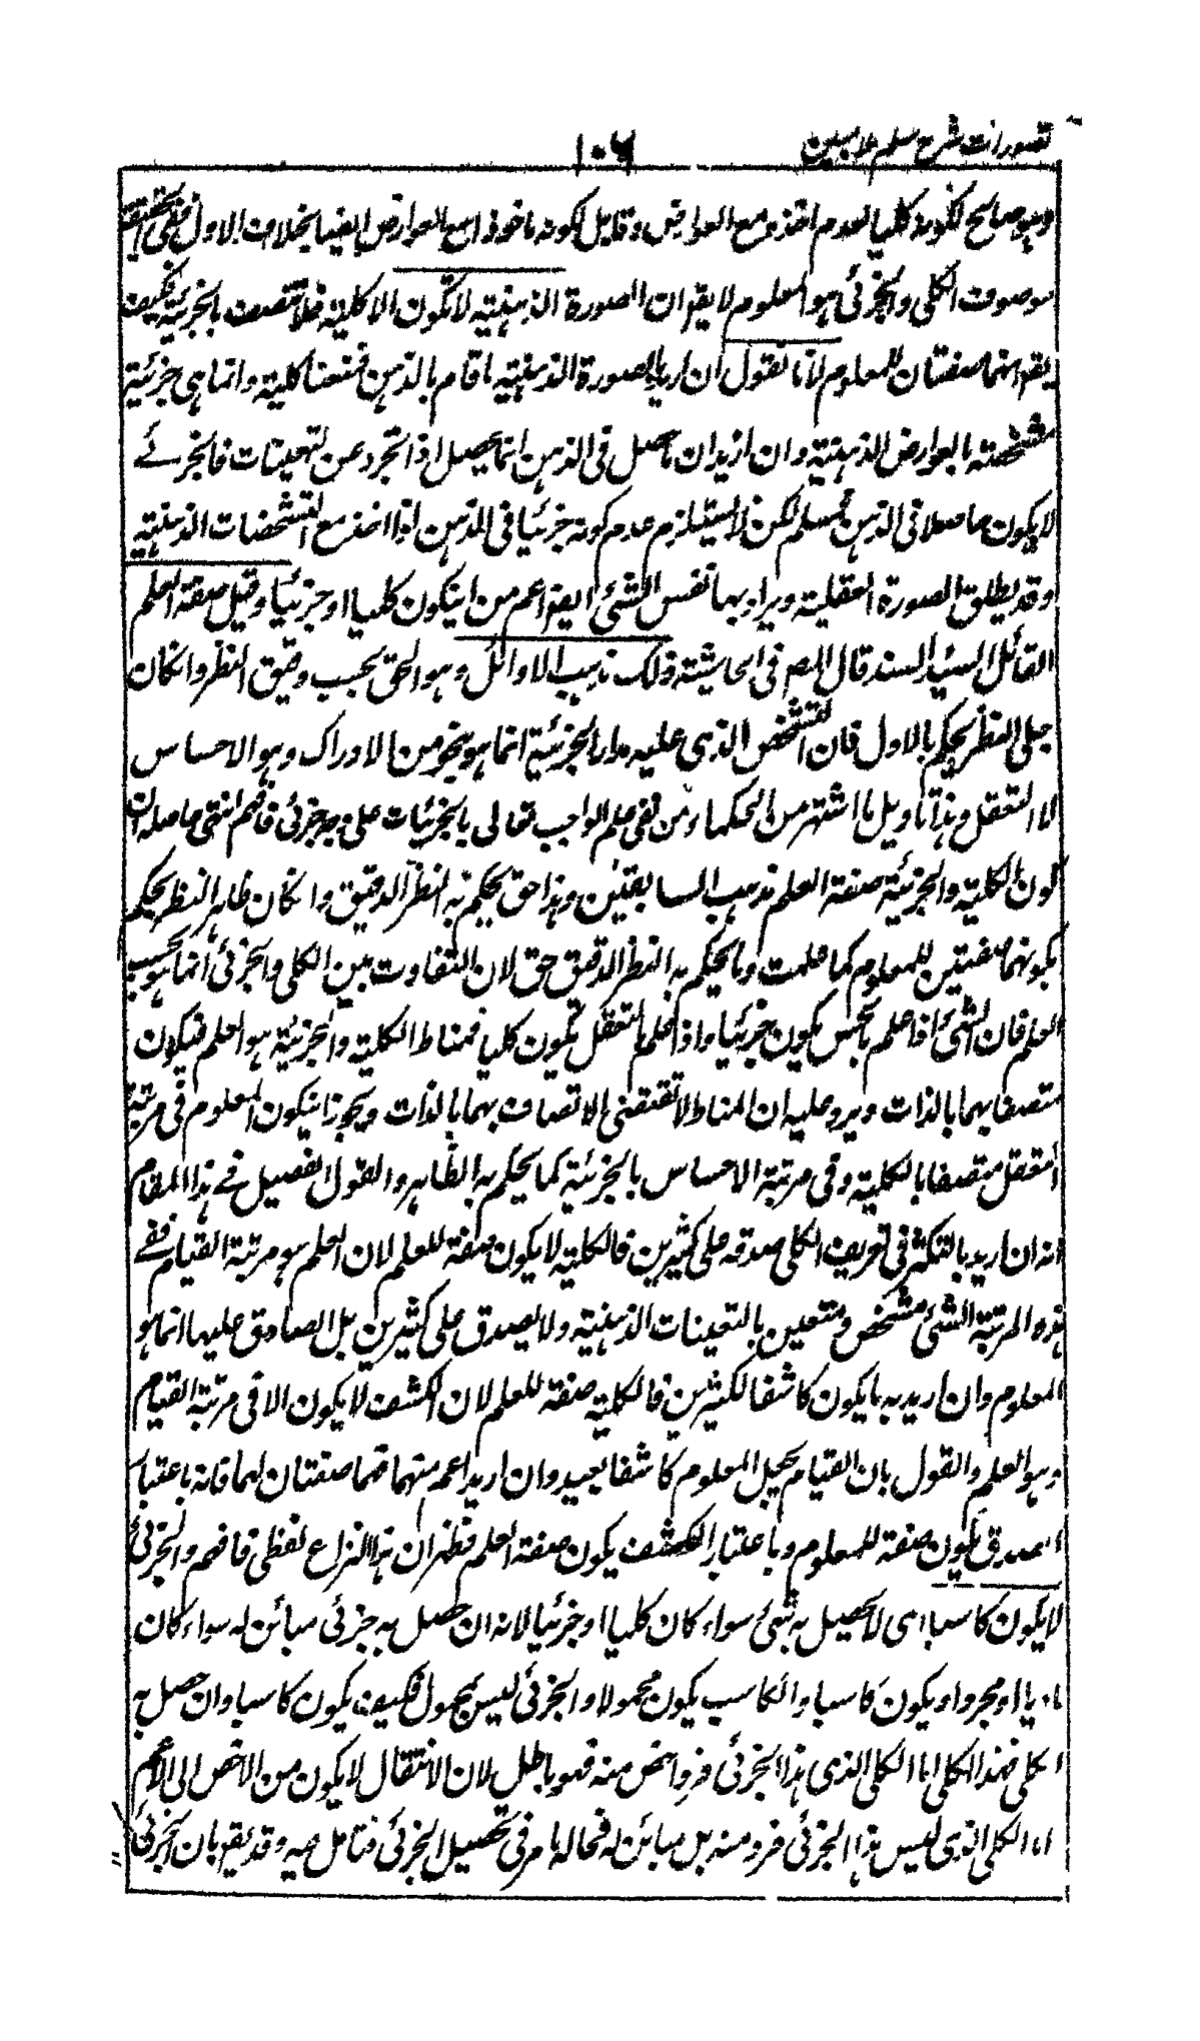 تصورات شرح سلم ملا مبين ١٠٦
وهو صالح لكونه كليا لعدم اخذه مع العوارض وقابل لكونه ماخوذا مع العوارض ايضا بخلاف الاول ففى الحقيقة
موصوف الكلى والجزئى هو المعلوم لا يقر ان الصورة الذهنية لا تكون الا كلية فلا تتصف بالجزئية فكيف
يقر انهما صفتان للمعلوم لانا نقول ان اريد بالصورة الذهنية ما قام بالذهن فمنعنا كلية وانما هى جزئية
مشخصة بالعوارض الذهنية وان اريد ان ما حصل فى الذهن انما يحصل اذا تجرد عن التعينات فالجزئے
لا يكون حاصلا فى الذهن فمسلم لكن لا يستلزم عدم كونه جزئيا فى الذهن اذا اخذ مع التشخصات الذهنية
وقد يطلق الصورة العقلية ويراد بها نفس الشئ ايضا اعم من ان يكون كليا او جزئيا وقيل صفة العلم
القائل السيد السند قال المص فى الحاشية ذلك مذهب الاوائل وهو الحق بحسب دقيق النظر وان كان
جلى النظر يحكم بالاول فان التشخص الذى عليه مدار الجزئية انما هو بنحو من الادراك وهو الاحساس
لا التعقل وهذا تاويل ما اشتهر من الحكماء من نفى علم الواجب تعالى بالجزئيات على وجه جزئى فافهم انتهى حاصله ان
كون الكلية والجزئية صفة العلم مذهب السابقين وهذا حق يحكم به النظر الدقيق وان كان ظاهر النظر يحكم
بكونهما صفتين للمعلوم كما علمت وما يحكم به النظر الدقيق حق لان التفاوت بين الكلى والجزئى انما هو بحسب
العلم فان الشئ اذا علم بالحس يكون جزئيا واذا علم بالتعقل يكون كليا فمناط الكلية والجزئية هو العلم فيكون
متصفا بهما بالذات ويرد عليه ان المناط لا تقتضى الاتصاف بهما بالذات ويجوز ان يكون المعلوم فى مرتبة
التعقل متصفا بالكلية وفى مرتبة الاحساس بالجزئية كما يحكم به الظاهر والقول الفصيل فے هذا المقام
انه ان اريد بالتكثر فى تعريف الكلى صدقه على كثيرين فالكلية لا يكون صفة للعلم لان العلم هو مرتبة القيام ففے
هذه المرتبة الشئ مشخص ومتعين بالتعينات الذهنية ولا يصدق على كثيرين بل الصادق عليها انما هو
المعلوم وان اريد به ما يكون كاشفا لكثيرين فالكلية صفة للعلم لان الكشف لا يكون الا فى مرتبة القيام
وهو العلم والقول بان القيام يجعل المعلوم كاشفا بعيد وان اريد اعم منهما فهما صفتان لهما فانه باعتبار
الصدق يكون صفة للمعلوم وباعتبار الكشف يكون صفة العلم فظهر ان هذا النزاع لفظى فافهم والجزئى
لا يكون كاسبا اى لا يحصل به شئ سواء كان كليا او جزئيا لانه ان حصل به جزئى مبائن له سواء كان
ماديا او مجردا ويكون كاسبا والكاسب يكون محمولا والجزئى ليس بمحمول فكيف يكون كاسبا وان حصل به
الكلى فهذا الكلى اما الكلى الذى هذا الجزئى فرد اخص منه فهو باطل لان الانتقال لا يكون من الاخص الى الاعم
اما الكلى الذى ليس هذا الجزئى فرد منه بل مبائن له فحاله ما مر فى تحصيل الجزئى فتامل فيه وقد يقر بان الجزئى